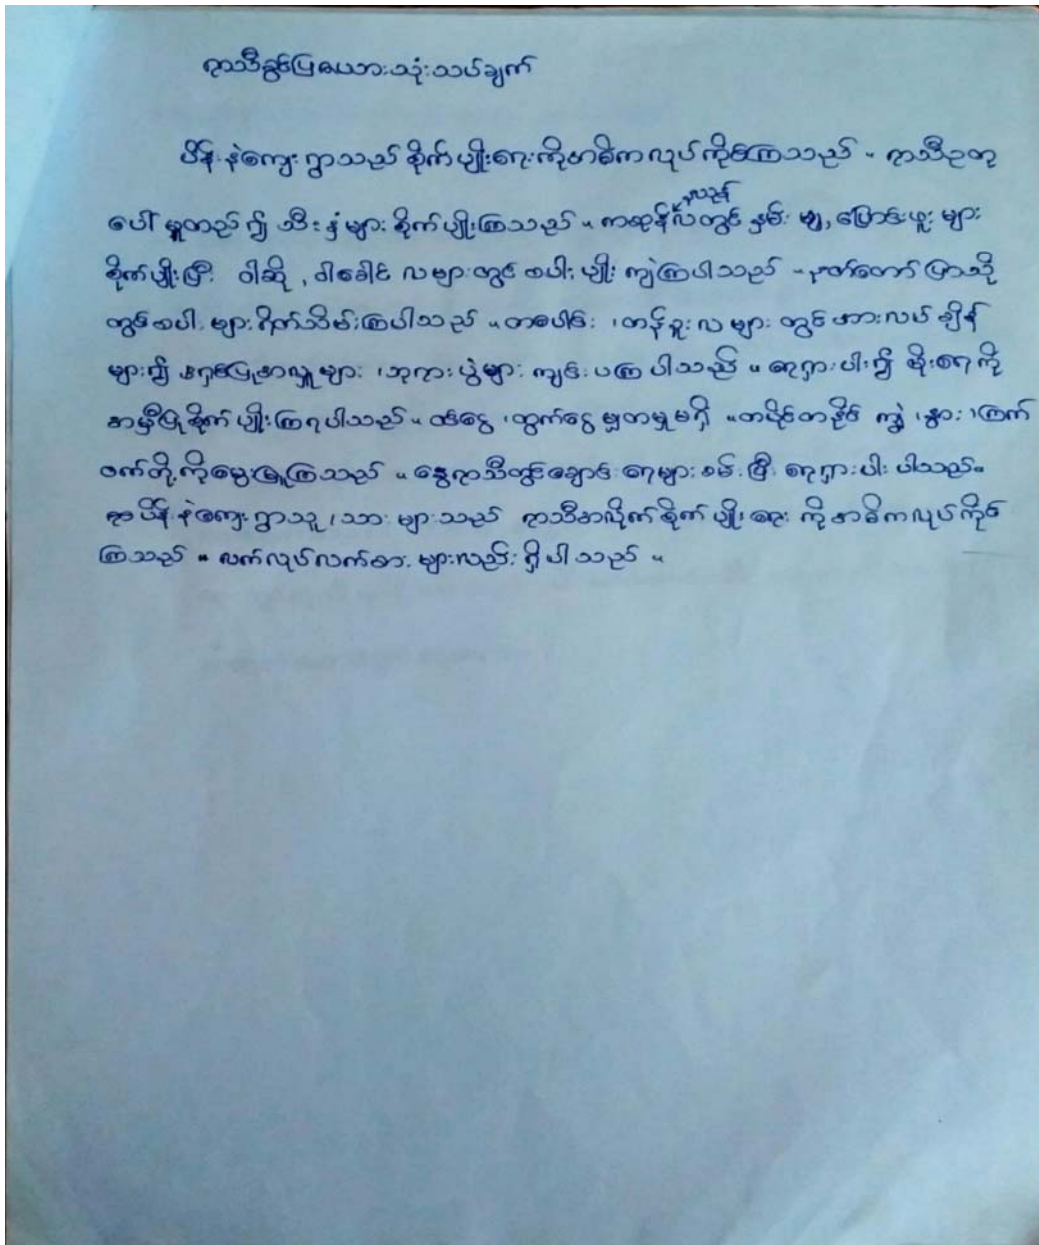 ရာသီခွင်ပြဇယားသုံးသပ်ချက်
ပိန္နဲကျေးရွာသည် စိုက်ပျိုးရေးကိုအဓိကလုပ်ကိုင်ကြသည် ။ ရာသီဥတု
ပေါ် မူတည်၍ သီးနှံများ စိုက်ပျိုးကြသည် ။ ကဆုန်၊နယုန် လတွင် နှမ်း မျှ, ပြောင်းဖူး များ
စိုက်ပျိုးပြီး ဝါဆို , ဝါခေါင် လများတွင် စပါး မျိုး ကျဲကြပါသည် ။ နတ်တော် ပြာသို
တွင်စပါး များရိတ်သိမ်းကြပါသည် ။ တပေါင်း ၊ တန်ခူး လ များ တွင် အားလပ် ချိန်
များ၍ ရှင်ပြုအလှူများ ၊ ဘုရားပွဲများ ကျင်းပကြ ပါသည် ။ ရေရှားပါး၍ မိုးရေကို
အမှီပြုစိုက်ပျိုးကြရပါသည် ။ ဝင်ငွေ ၊ ထွက်ငွေ မျှတမှုမရှိ ။ တပိုင်တနိုင် ကျွဲ ၊ နွား ၊ ကြက်
ဝက်တို့ ကိုမွေးမြူကြသည် ။ နွေရာသီတွင်ချောင်း ရေများ ခမ်း ပြီး ရေရှားပါး ပါသည် ။
ပိန္နဲကျေးရွာသူ ၊ သား များသည် ရာသီအလိုက်စိုက်ပျိုး ရေး ကိုအဓိကလုပ်ကိုင်
ကြသည် ။ လက်လုပ်လက်စား များလည်း ရှိပါသည် ။